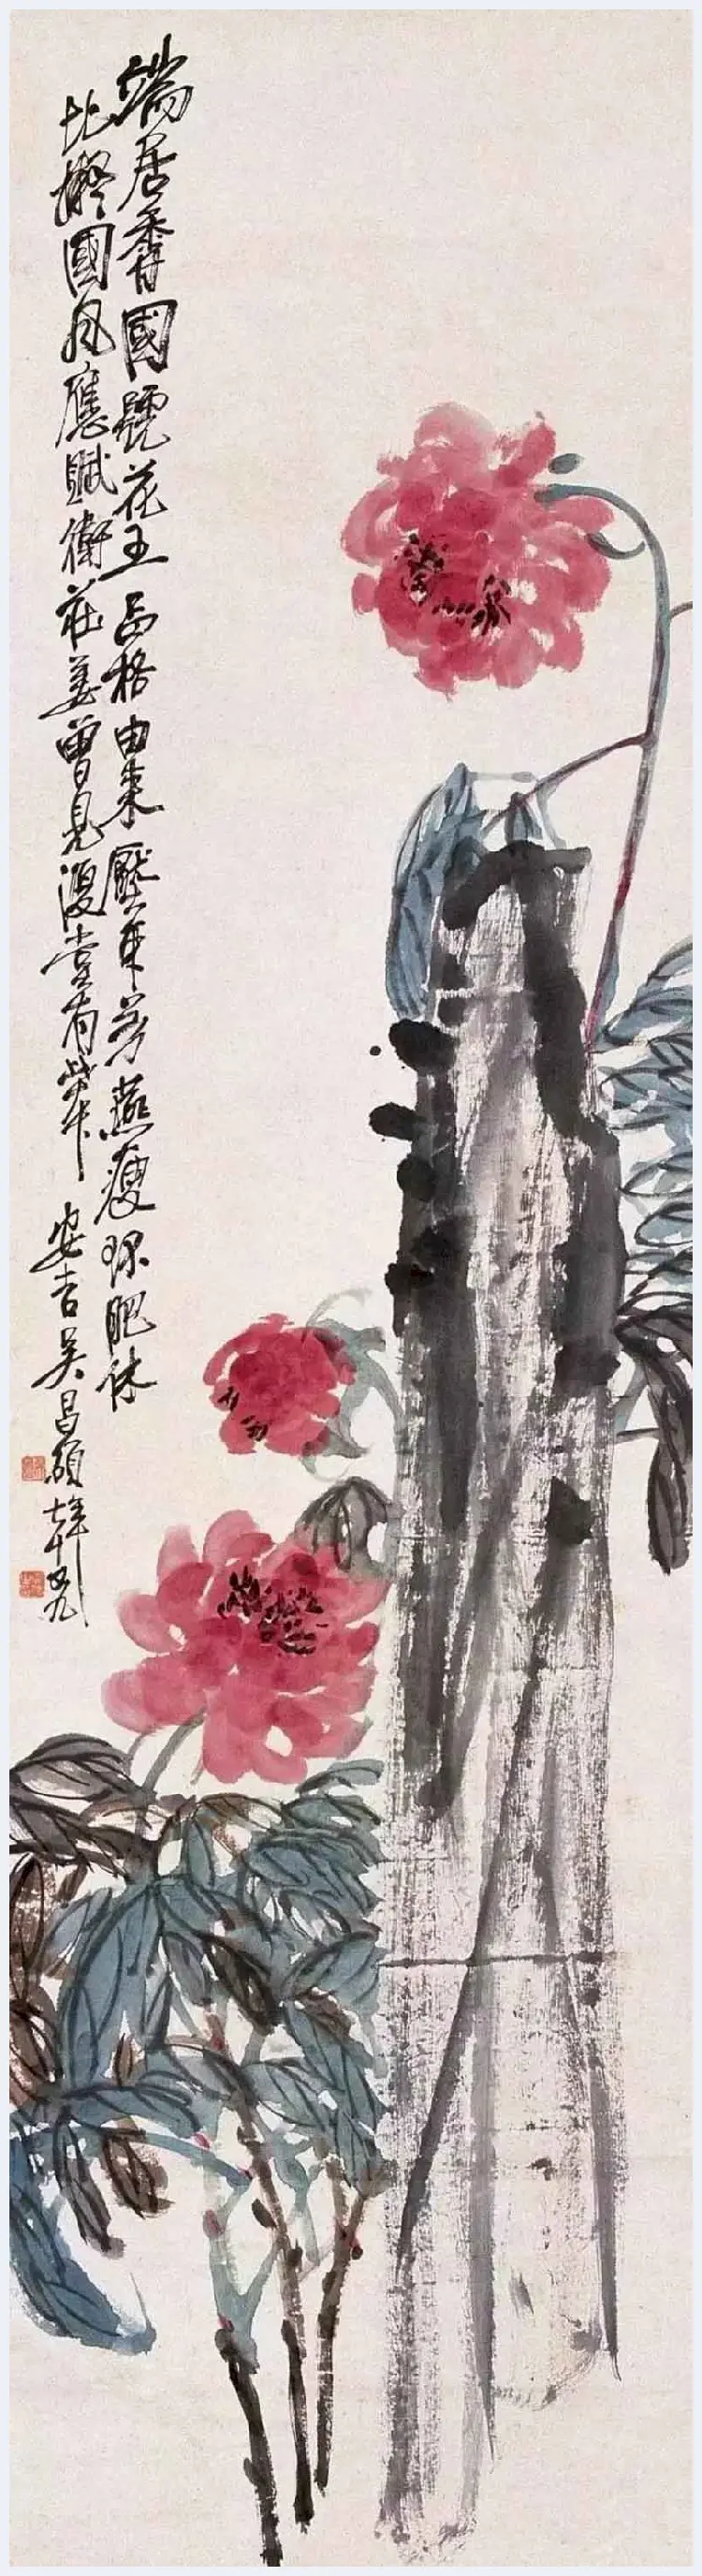 端居香國號花王品格由來壓眾芳燕瘦環肥休
比擬國風應賦衛莊姜曾見漫堂有此本安吉吳昌碩年七十九